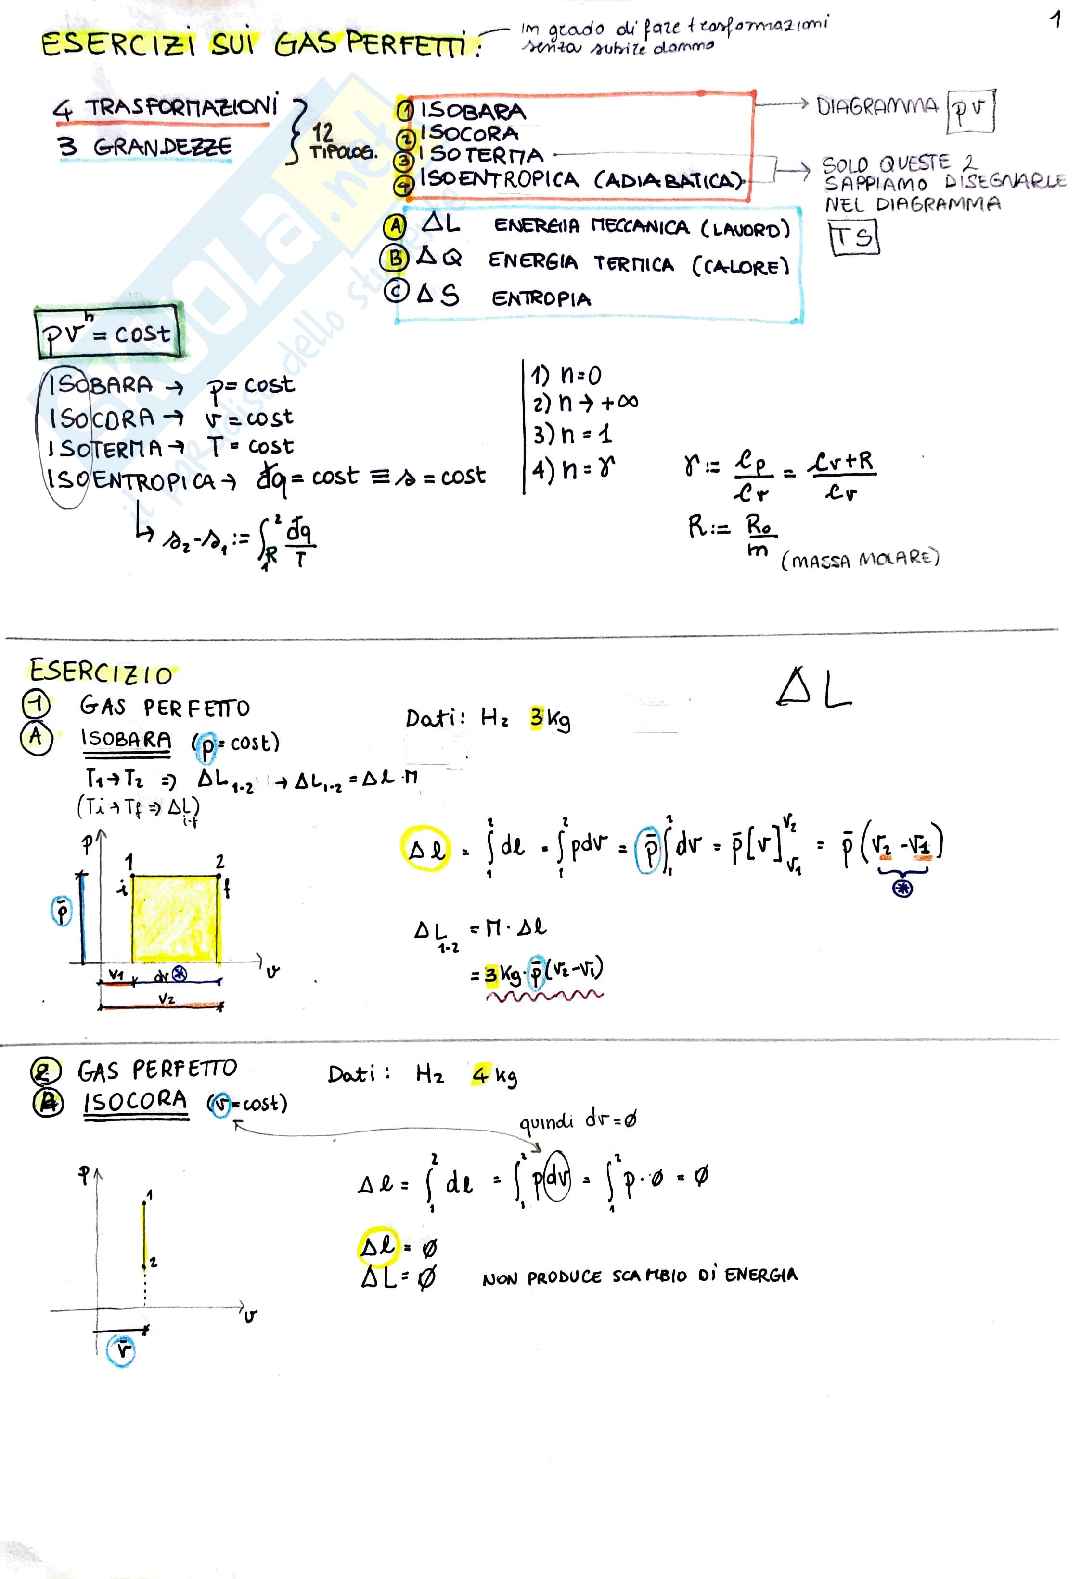 ESERCIZI SUI GAS PERFETTI: in grado di fare trasformazioni
senza subire danno
1
4 TRASFORMAZIONI
3 GRANDEZZE
12
TIPOLOG.
1 ISOBARA
2 ISOCORA
3 ISOTERMA
4 ISOENTROPICA (ADIABATICA)
DIAGRAMMA pv
SOLO QUESTE 2
SAPPIAMO DISEGNARLE
NEL DIAGRAMMA
TS
A ΔL ENERGIA MECCANICA (LAVORO)
B ΔQ ENERGIA TERMICA (CALORE)
C ΔS ENTROPIA
pvⁿ = cost
ISOBARA → p = cost
ISOCORA → v = cost
ISOTERMA → T = cost
ISOENTROPICA → đq = cost ≡ s = cost
↳ s₂-s₁ := ∫₁²_R đq/T
1) n=0
2) n → +∞
3) n = 1
4) n = γ
γ := cp/cv = (cv+R)/cv
R := R₀/m (MASSA MOLARE)
ESERCIZIO
1 GAS PERFETTO
A ISOBARA (p=cost)
Dati: H₂ 3kg
ΔL
T₁→T₂ ⇒ ΔL₁₋₂ → ΔL₁₋₂ = Δl · M
(Ti → Tf ⇒ ΔL i-f)
p
1 2
i f
p̄
v
v₁ dv ⊛
v₂
Δl = ∫₁² dl = ∫₁² pdv = p̄ ∫₁² dv = p̄ [v]ᵥ₁ᵛ² = p̄ (v₂ - v₁)
⊛
ΔL₁₋₂ = M · Δl
= 3kg · p̄ (v₂-v₁)
2 GAS PERFETTO
A ISOCORA (v=cost)
Dati: H₂ 4kg
quindi dv = ∅
p
1
2
v
v̄
Δl = ∫₁² dl = ∫₁² pdv = ∫₁² p · ∅ = ∅
Δl = ∅
ΔL = ∅ NON PRODUCE SCAMBIO DI ENERGIA
SKUOLA.net
il paradiso dello studente